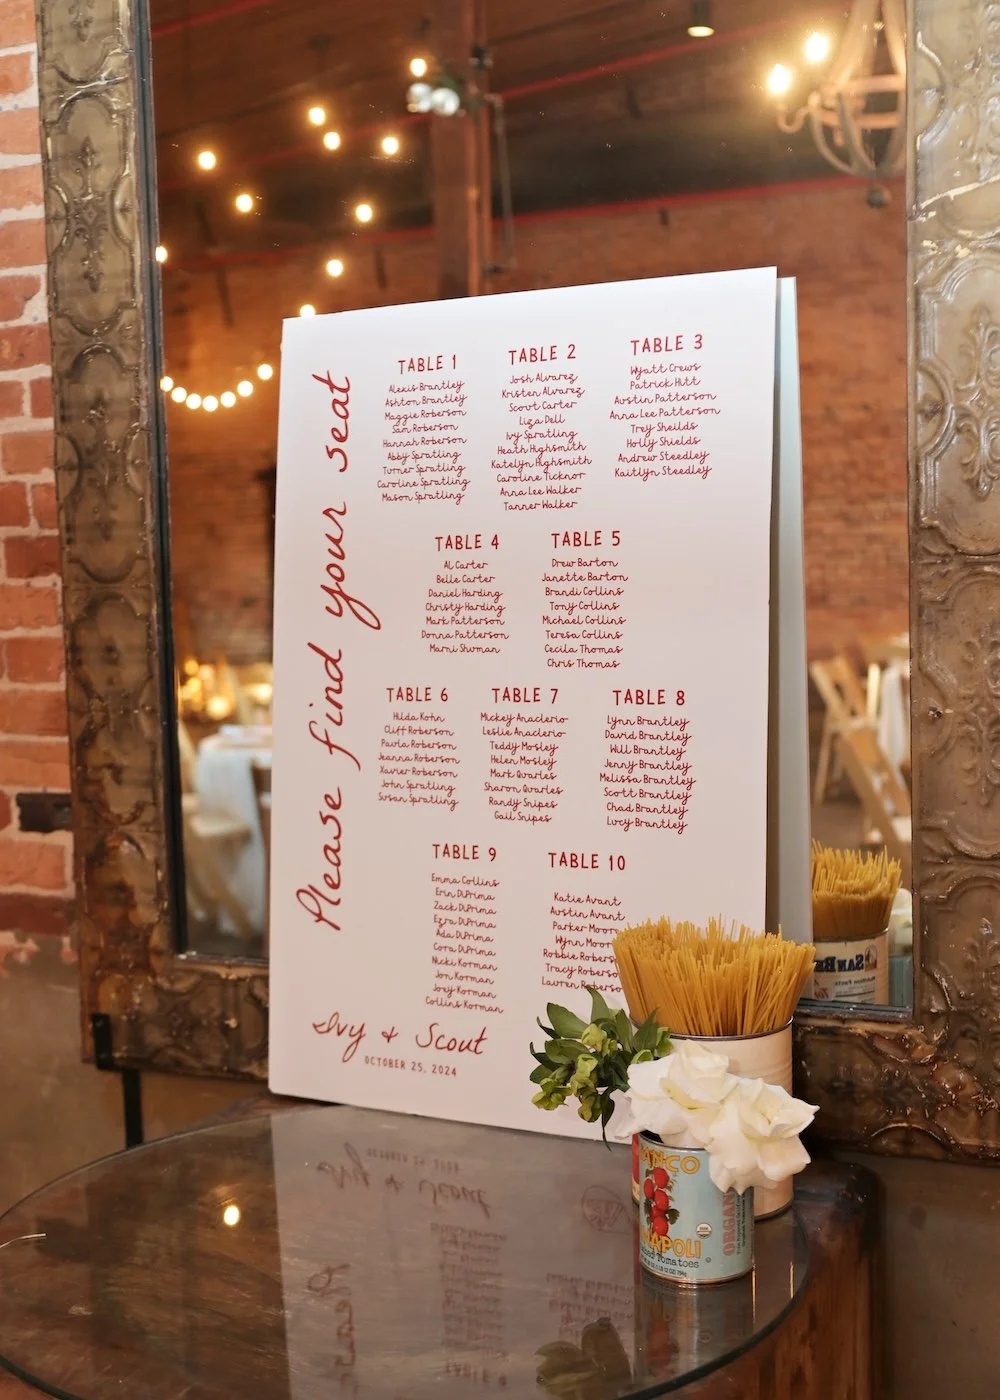 Please find your seat
TABLE 1
Alexis Brantley
Ashton Brantley
Maggie Roberson
Sam Roberson
Hannah Roberson
Abby Spratling
Turner Spratling
Caroline Spratling
Mason Spratling
TABLE 2
Josh Alvarez
Kristen Alvarez
Scout Carter
Liza Dell
Ivy Spratling
Heath Highsmith
Katelyn Highsmith
Caroline Ticknor
Anna Lee Walker
Tanner Walker
TABLE 3
Wyatt Crews
Patrick Hitt
Austin Patterson
Anna Lee Patterson
Trey Sheilds
Holly Shields
Andrew Steedley
Kaitlyn Steedley
TABLE 4
Al Carter
Belle Carter
Daniel Harding
Christy Harding
Mark Patterson
Donna Patterson
Marni Shuman
TABLE 5
Drew Barton
Janette Barton
Brandi Collins
Tony Collins
Michael Collins
Teresa Collins
Cecila Thomas
Chris Thomas
TABLE 6
Hilda Kohn
Cliff Roberson
Paula Roberson
Jeanna Roberson
Xavier Roberson
John Spratling
Susan Spratling
TABLE 7
Mickey Anaclerio
Leslie Anaclerio
Teddy Mosley
Helen Mosley
Mark Quarles
Sharon Quarles
Randy Snipes
Gail Snipes
TABLE 8
Lynn Brantley
David Brantley
Will Brantley
Jenny Brantley
Melissa Brantley
Scott Brantley
Chad Brantley
Lucy Brantley
TABLE 9
Emma Collins
Erin DiPrima
Zack DiPrima
Ezra DiPrima
Ada DiPrima
Cora DiPrima
Nicki Korman
Jon Korman
Joey Korman
Collins Korman
TABLE 10
Katie Avant
Austin Avant
Parker Moor
Wynn Moor
Robbie Robers
Tracy Roberso
Lauren Roberso
Ivy & Scout
OCTOBER 25, 2024
NAPOLI
Tomatoes